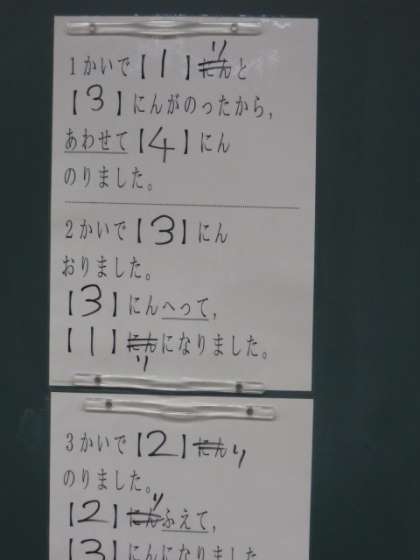 1かいで【1】にんりと
【3】にんがのったから,
あわせて【4】にん
のりました。
2かいで【3】にん
おりました。
【3】にんへって,
【1】にんりになりました。
3かいで【2】にんり
のりました。
【2】にんりふえて,
【3】にんになりました